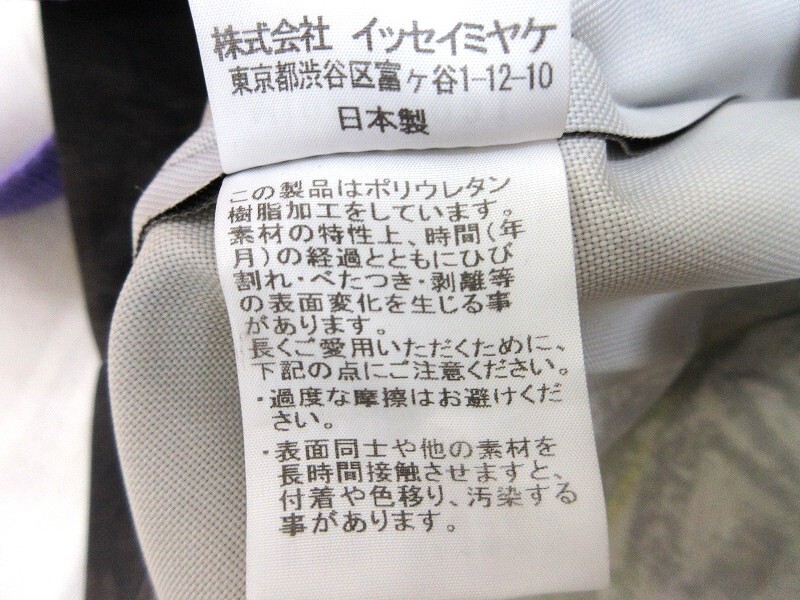 株式会社 イッセイミヤケ
東京都渋谷区富ヶ谷1-12-10
日本製
この製品はポリウレタン
樹脂加工をしています。
素材の特性上、時間(年
月)の経過とともにひび
割れ・べたつき・剥離等
の表面変化を生じる事
があります。
長くご愛用いただくために、
下記の点にご注意ください。
・過度な摩擦はお避けくだ
さい。
・表面同士や他の素材を
長時間接触させますと、
付着や色移り、汚染する
事があります。